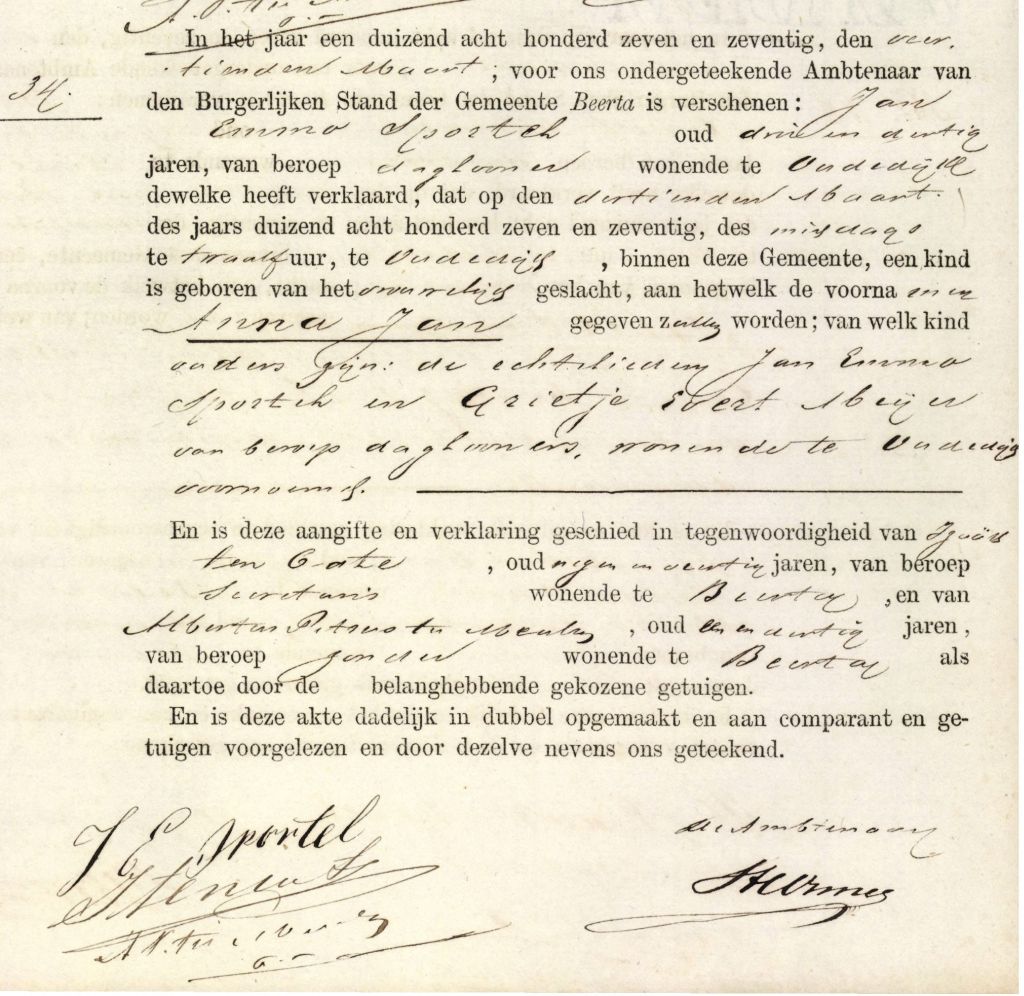 In het jaar een duizend acht honderd zeven en zeventig, den veer-
34.
tienden Maart ; voor ons ondergeteekende Ambtenaar van
den Burgerlijken Stand der Gemeente Beerta is verschenen: Jan
Emmo Sportel oud drie en dertig
jaren, van beroep daglooner wonende te Oudedijk
dewelke heeft verklaard, dat op den dertienden Maart
des jaars duizend acht honderd zeven en zeventig, des middags
te twaalf uur, te Oudedijk , binnen deze Gemeente, een kind
is geboren van het vrouwelijk geslacht, aan hetwelk de voorna men
Anna Jan gegeven zullen worden; van welk kind
ouders zijn: de echtelieden Jan Emmo
Sportel en Grietje Evert Meijer
van beroep daglooners, wonende te Oudedijk
voornoemd.
En is deze aangifte en verklaring geschied in tegenwoordigheid van
ten Cate , oud negen en veertig jaren, van beroep
Secretaris wonende te Beerta , en van
Albertus Petrus , oud een en dertig jaren,
van beroep zonder wonende te Beerta als
daartoe door de belanghebbende gekozene getuigen.
En is deze akte dadelijk in dubbel opgemaakt en aan comparant en ge-
tuigen voorgelezen en door dezelve nevens ons geteekend.
J E Sportel
de Ambtenaar